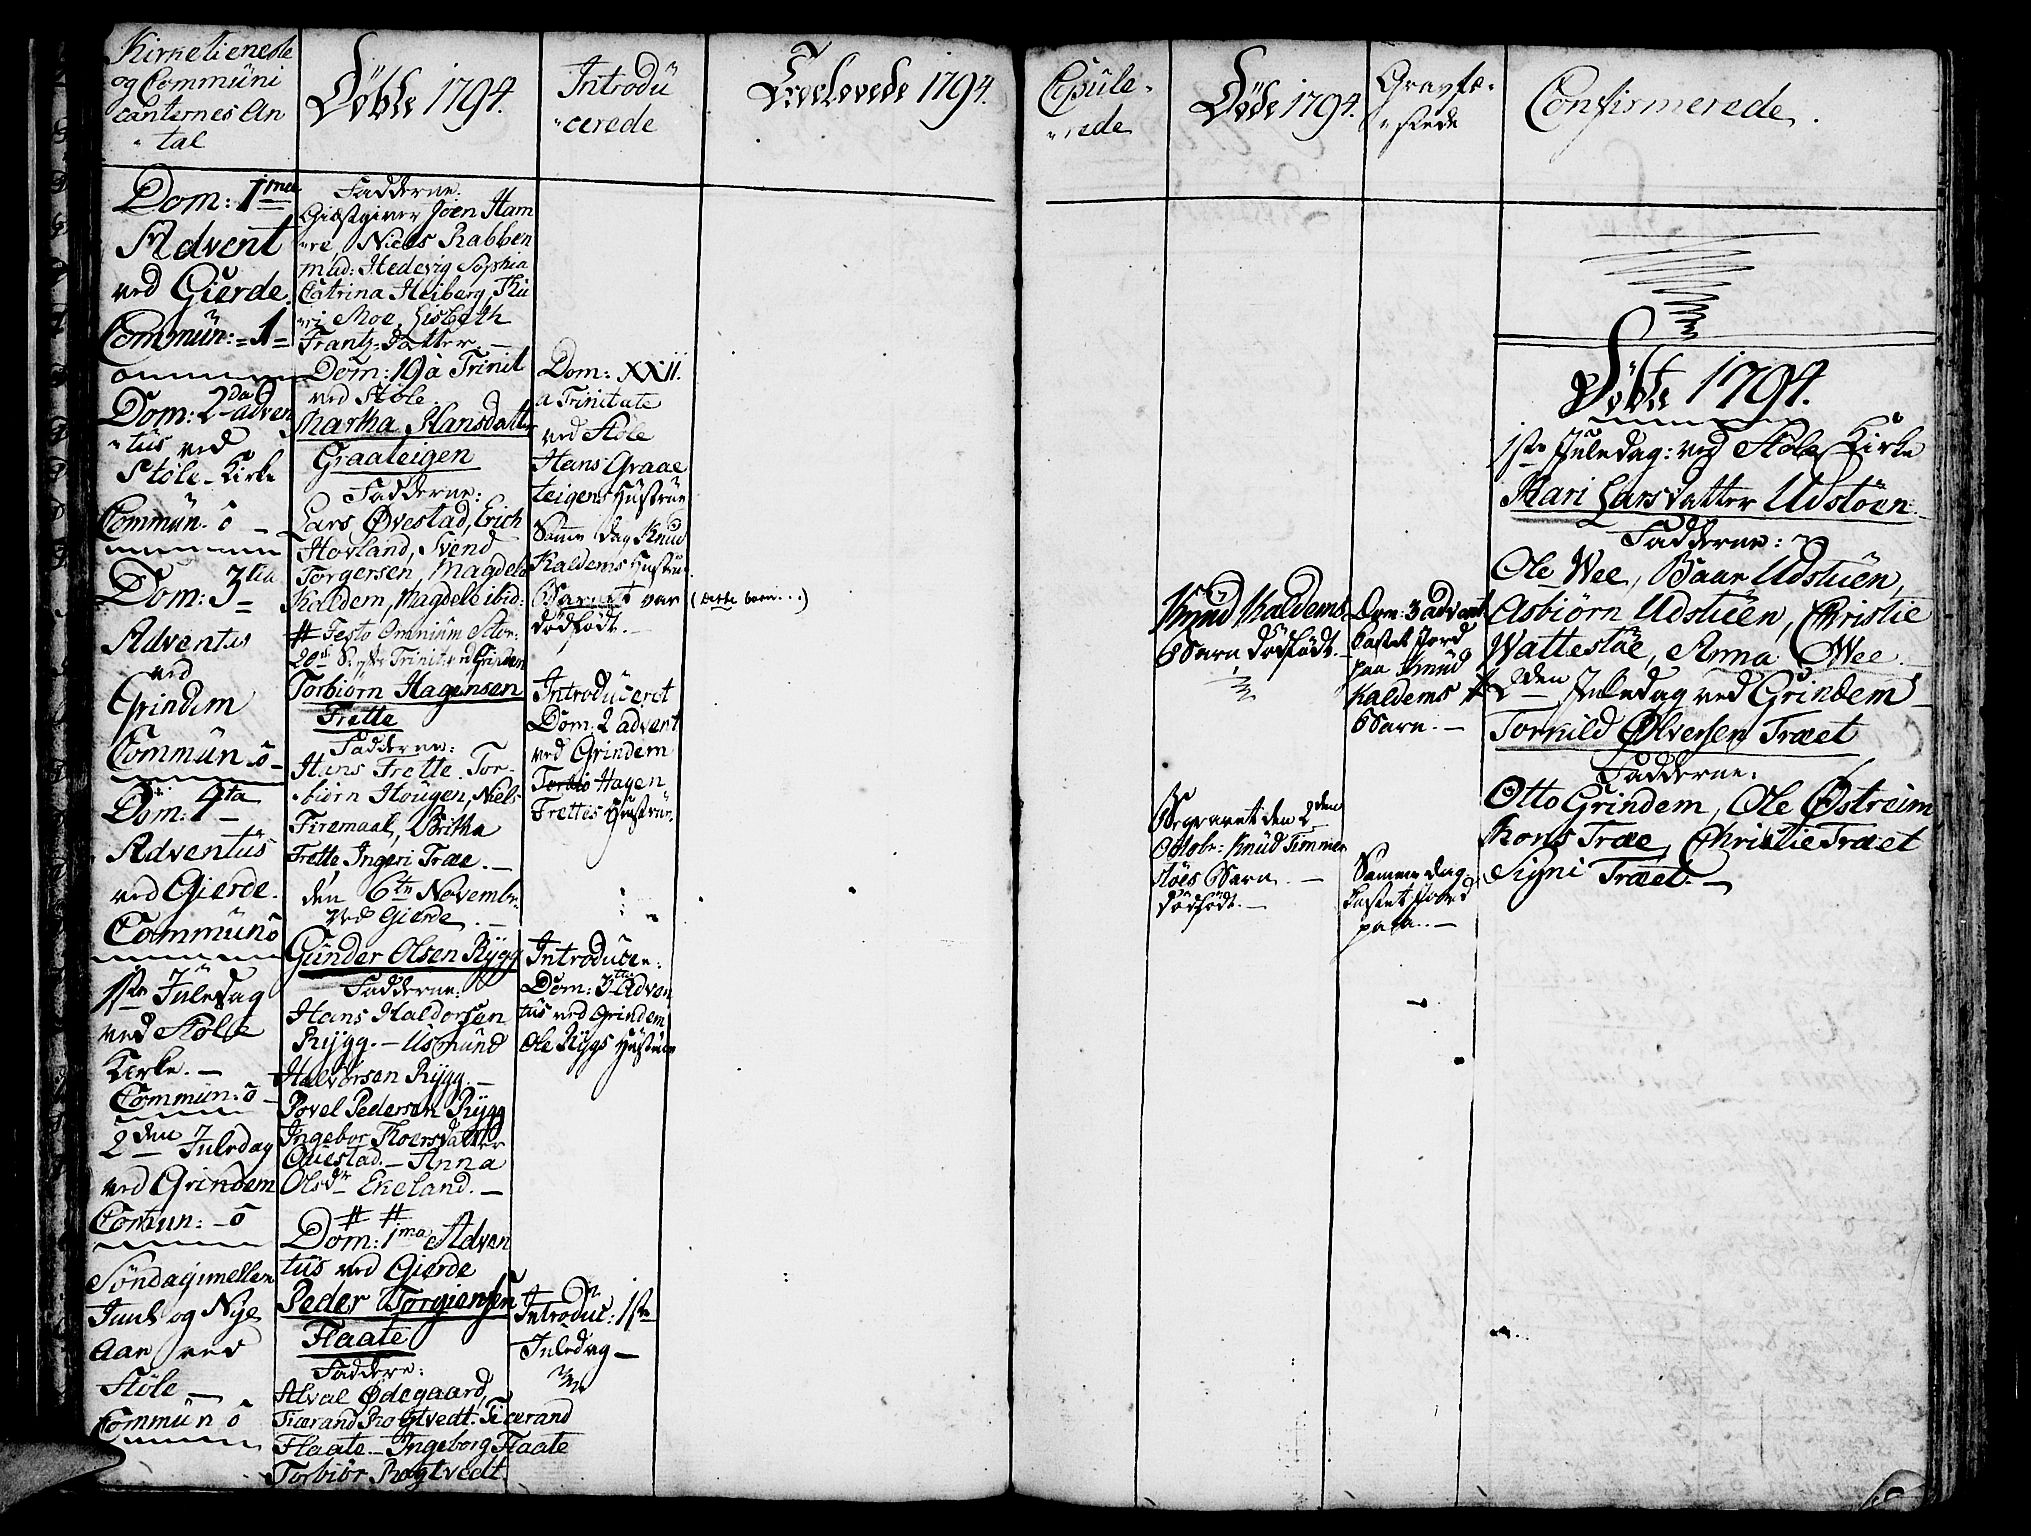 Kirketieneste
og Communi
canternes An
tal
Dom: 1ma
Advent
ved Gierde.
Commün: = 1 =
Dom: 2da adven
tus ved
Støle Kirke
Commün. o
Dom: 3tia
Adventus
ved
Grindem
Commün o
Dom: 4ta
Adventüs
ved Gierde.
Commün o
1ste Jüledag
ved Støle
Kirke.
Commün: o
2den Juledag
ved Grindem
Commun: o
Søndag imellem
Juul og Nye
Aar ved
Støle
Commün o
Døbte 1794.
Fadderne:
Giestgiver Joen Ham
re, Niels Rabben
mad: Hedevig Sophia
Catrina Heiberg,
Moe, Lisbeth
Frantz-datter.
Dom: 19 a Trinit
ved Støle.
Martha Hansdatter
Graateigen
Fadderne:
Lars Øvestad, Erich
Hovland, Svend
Torgersen, Magdele
Kaldem, Magdele ibid:
# Festo Omnium
20de Trinit: ved Grindem
Torbiørn Hagensen
Frette
Fadderne:
Hans Frette. Tor-
biørn Hougen, Niels
Firemaal, Britha
Frette, Ingeri Træe.
den 6te Novembr.
ved Gierde
Günder Olsen Rygg
Fadderne:
Hans Haldorsen
Rygg. Usmünd
Halvorsen Rygg.
Povel Pedersen Rygg
Ingebor Thoersdatter
Qviestad. Anna
Olsdr Ekeland.
# #
Dom: 1ma Adven
tüs ved Gierde
Peder Torgiersen
Flaate
Faddere:
Alval Ødegaard,
Tierand Rogtvedt. Tierand
Flaate. Ingeborg Flaate
Torbiør Rogtvedt.
Introdu
cerede
Dom: XXII.
a Trinitate
ved Støle
Hans Graae
teigens Hustrue
Samme dag Knud
Kaldems Hustrue
Barnet var
dødfødt.
Introduceret
Dom: 2 advent
ved Grindem
Hagen
Frettes Hustrue.
Introducer:
Dom: 3tia Adven
tüs ved Grindem
Ole Rygs Hustrue
Introduc: 1ste
Juledag
Trolovede 1794.
Copule-
rede
Døde 1794.
Knud Kaldems
Barn dødfødt.
Begravet den 2den
Octobr: Knud Timmer
støes Barn.
dødfødt.
Gravfæ-
stede
Dom: 3 advent
kastet Jord
paa Knud
Kaldems
Barn.
Samme dag
kastet Jord
paa.
Confirmerede.
Døbte 1794.
1ste Juledag: ved Støle Kirke
Kari Larsdatter Udstøen
Fadderne:
Ole Wee, Baar Udstuen,
Asbiørn Udstüen, Christie
Wattestøe, Anna Wee.
# 2den Juledag ved Grindem
Torkild Ølversen Træet
Fadderne:
Otto Grindem, Ole Østreim
Træe, Christie Træet
Signi Træet.